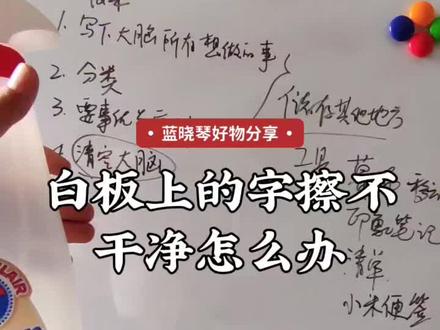 1. 写下大脑所有想做的事
2. 分类
3. 要事优先
清空大脑
储存其他地方
工具
印象笔记
清单
小米便签
蓝晓琴好物分享
白板上的字擦不
干净怎么办